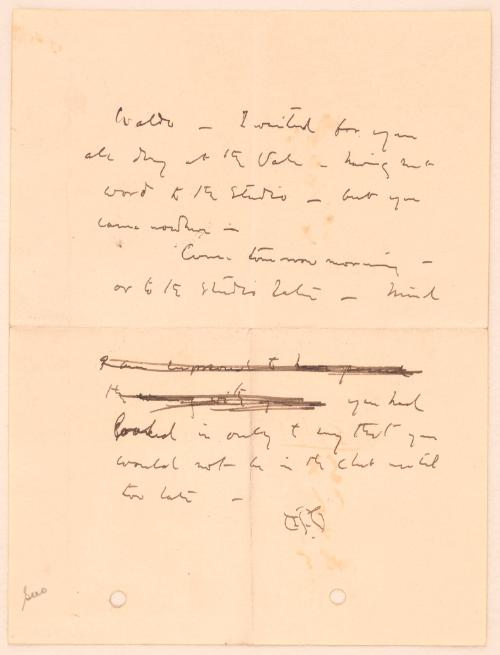 Waldo — I waited for you
all day at the Vale — having sent
word to the Studio — but you
came nowhere —
Come tomorrow morning —
or to the Studio later —
the you had
looked in only to say that you
would not be in the club until
too late —